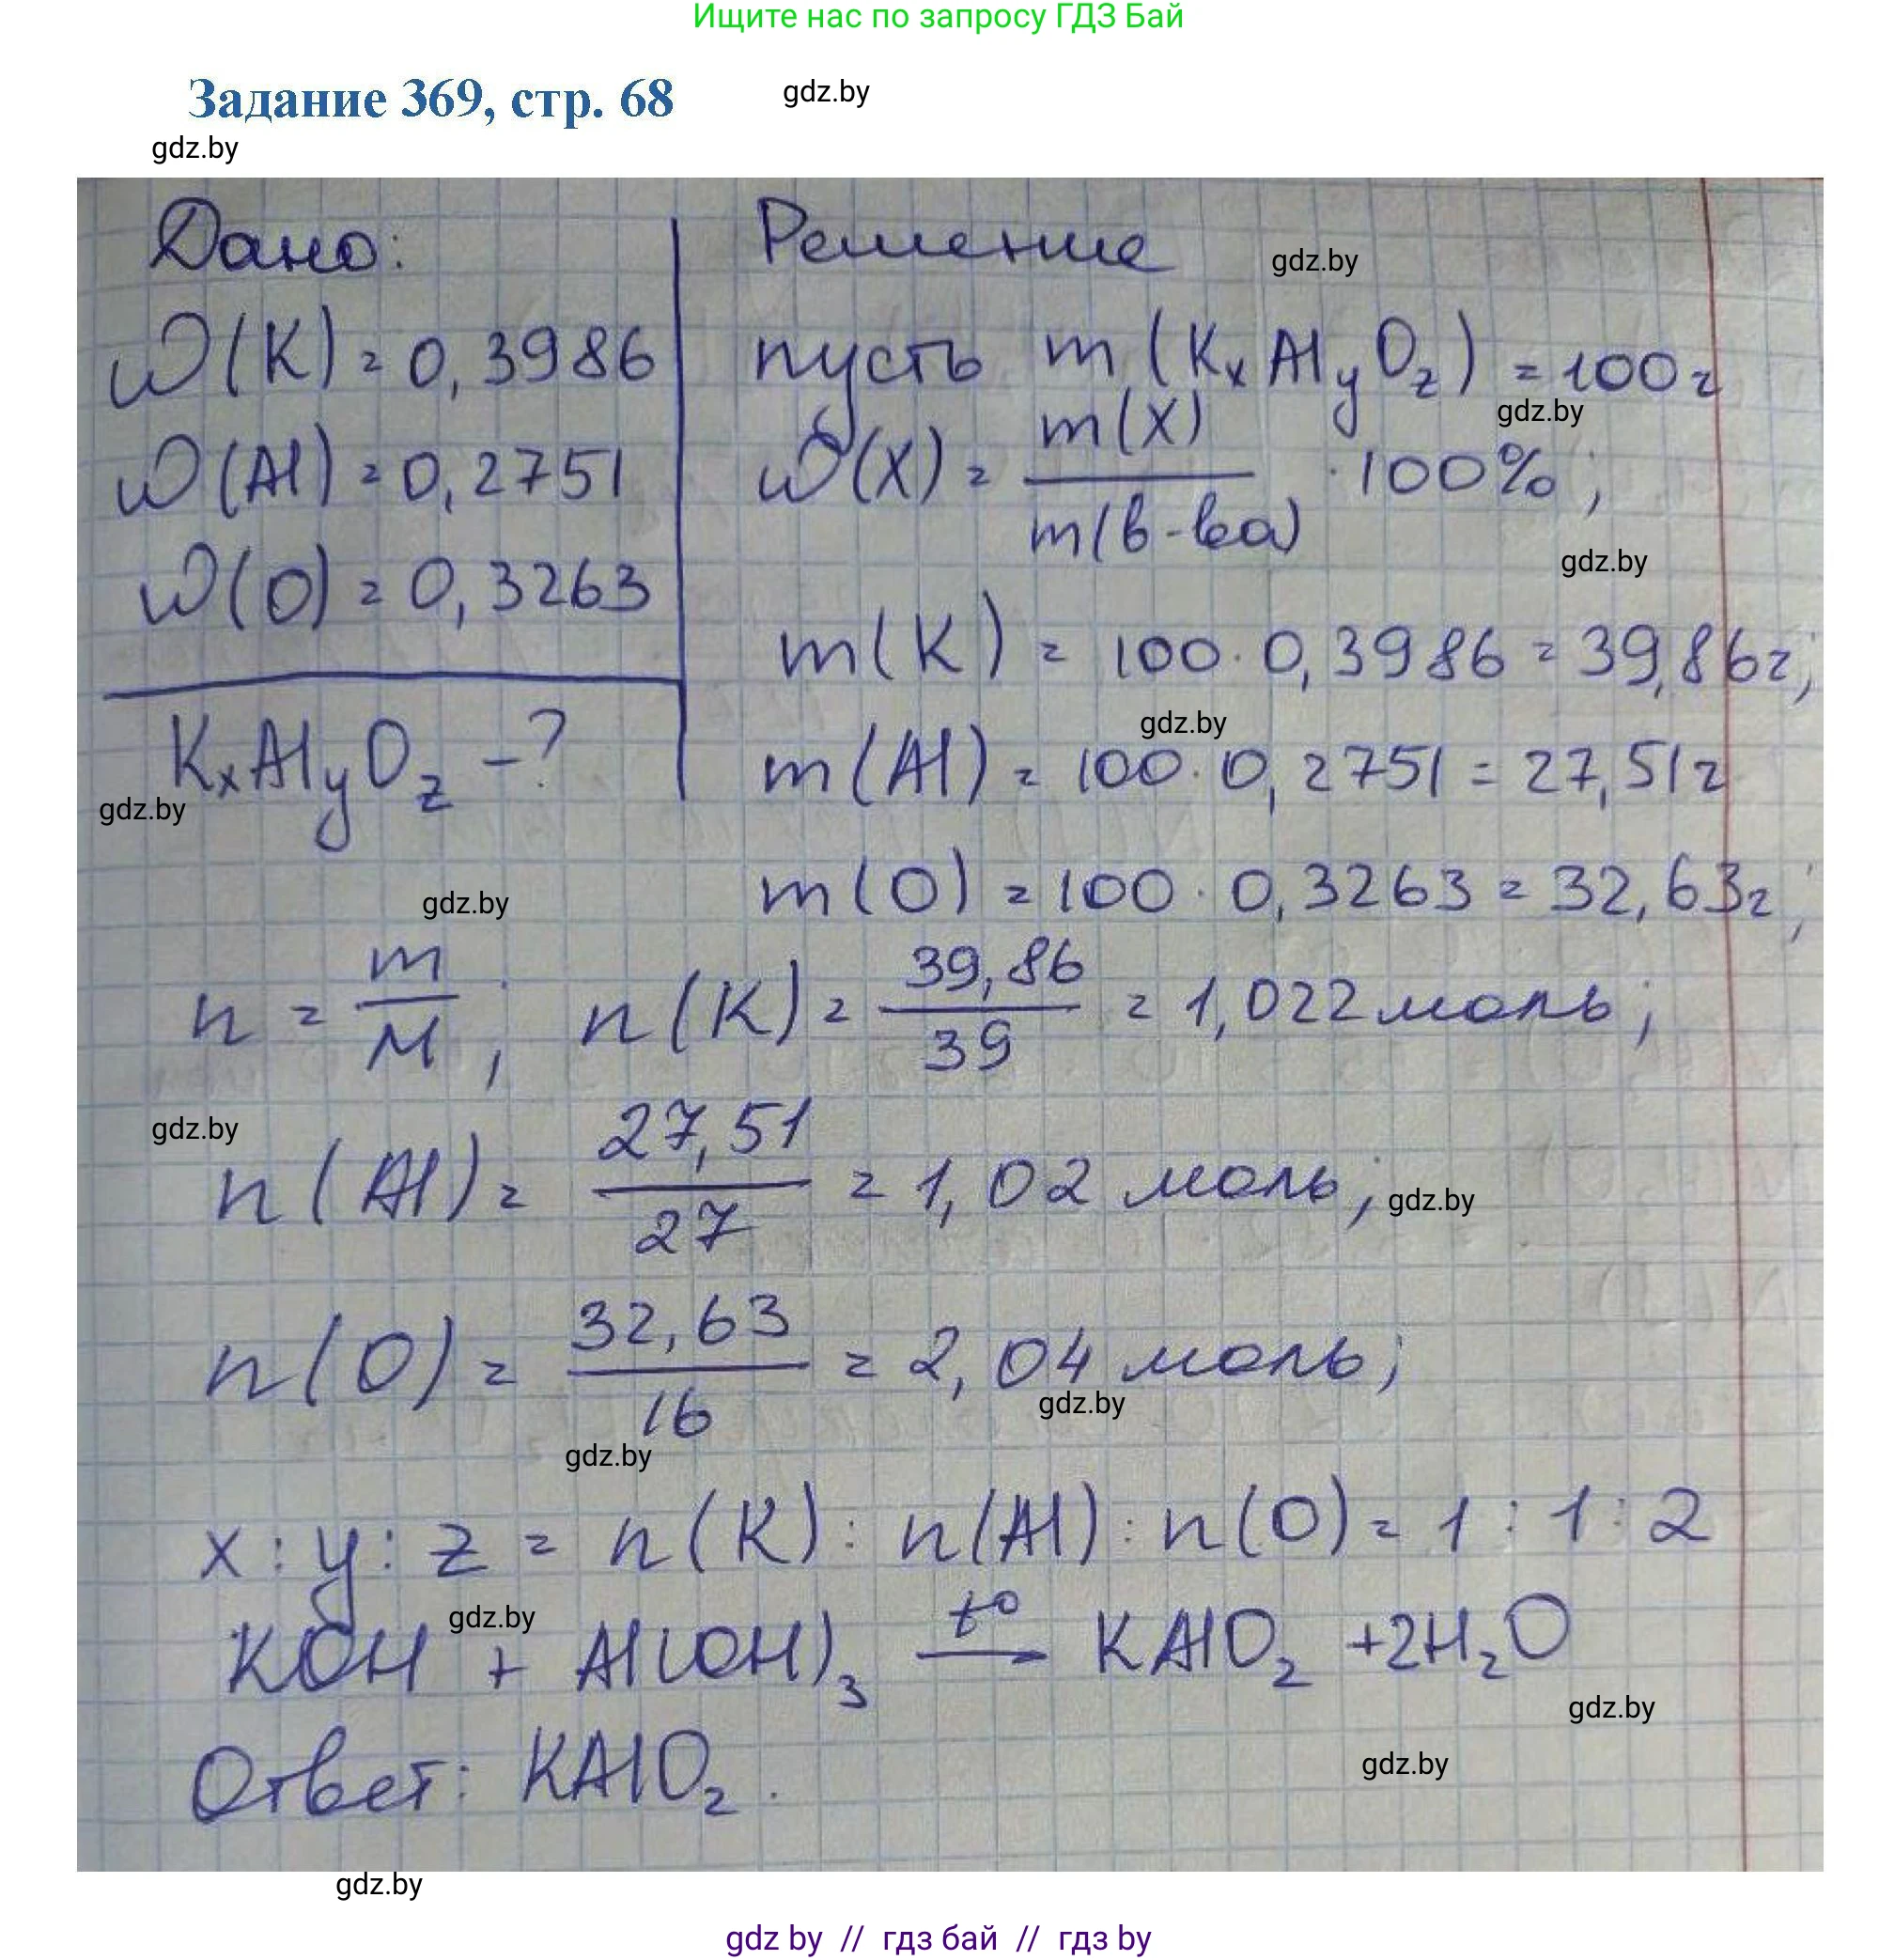 Ищите нас по запросу ГДЗ Бай
Задание 369, стр. 68
gdz.by
gdz.by
Дано:
Решение
gdz.by
ω(K) = 0,3986
пусть m(KxAlyOz) = 100г
gdz.by
ω(Al) = 0,2751
ω(X) = m(X) / m(в-ва) · 100%;
gdz.by
ω(O) = 0,3263
m(K) = 100 · 0,3986 = 39,86г;
gdz.by
KxAlyOz - ?
m(Al) = 100 · 0,2751 = 27,51г
gdz.by
m(O) = 100 · 0,3263 = 32,63г;
gdz.by
n = m / M; n(K) = 39,86 / 39 = 1,022 моль;
gdz.by
n(Al) = 27,51 / 27 = 1,02 моль;
gdz.by
n(O) = 32,63 / 16 = 2,04 моль;
gdz.by
gdz.by
x : y : z = n(K) : n(Al) : n(O) = 1 : 1 : 2
gdz.by
KOH + Al(OH)₃ —t°→ KAlO₂ + 2H₂O
gdz.by
gdz.by
Ответ: KAlO₂.
gdz.by
gdz by // гдз бай // гдз by